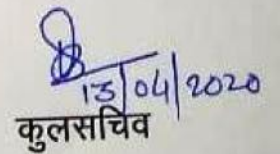 13/04/2020
कुलसचिव